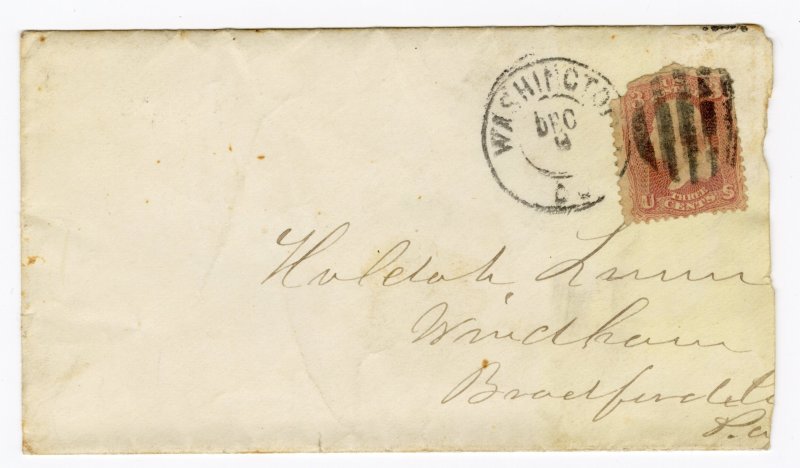 WASHINGTO
DEC
6
D.
3 U.S. 3
U THREE CENTS S
Huldah Lunn
Windham
Bradford Co
Pa